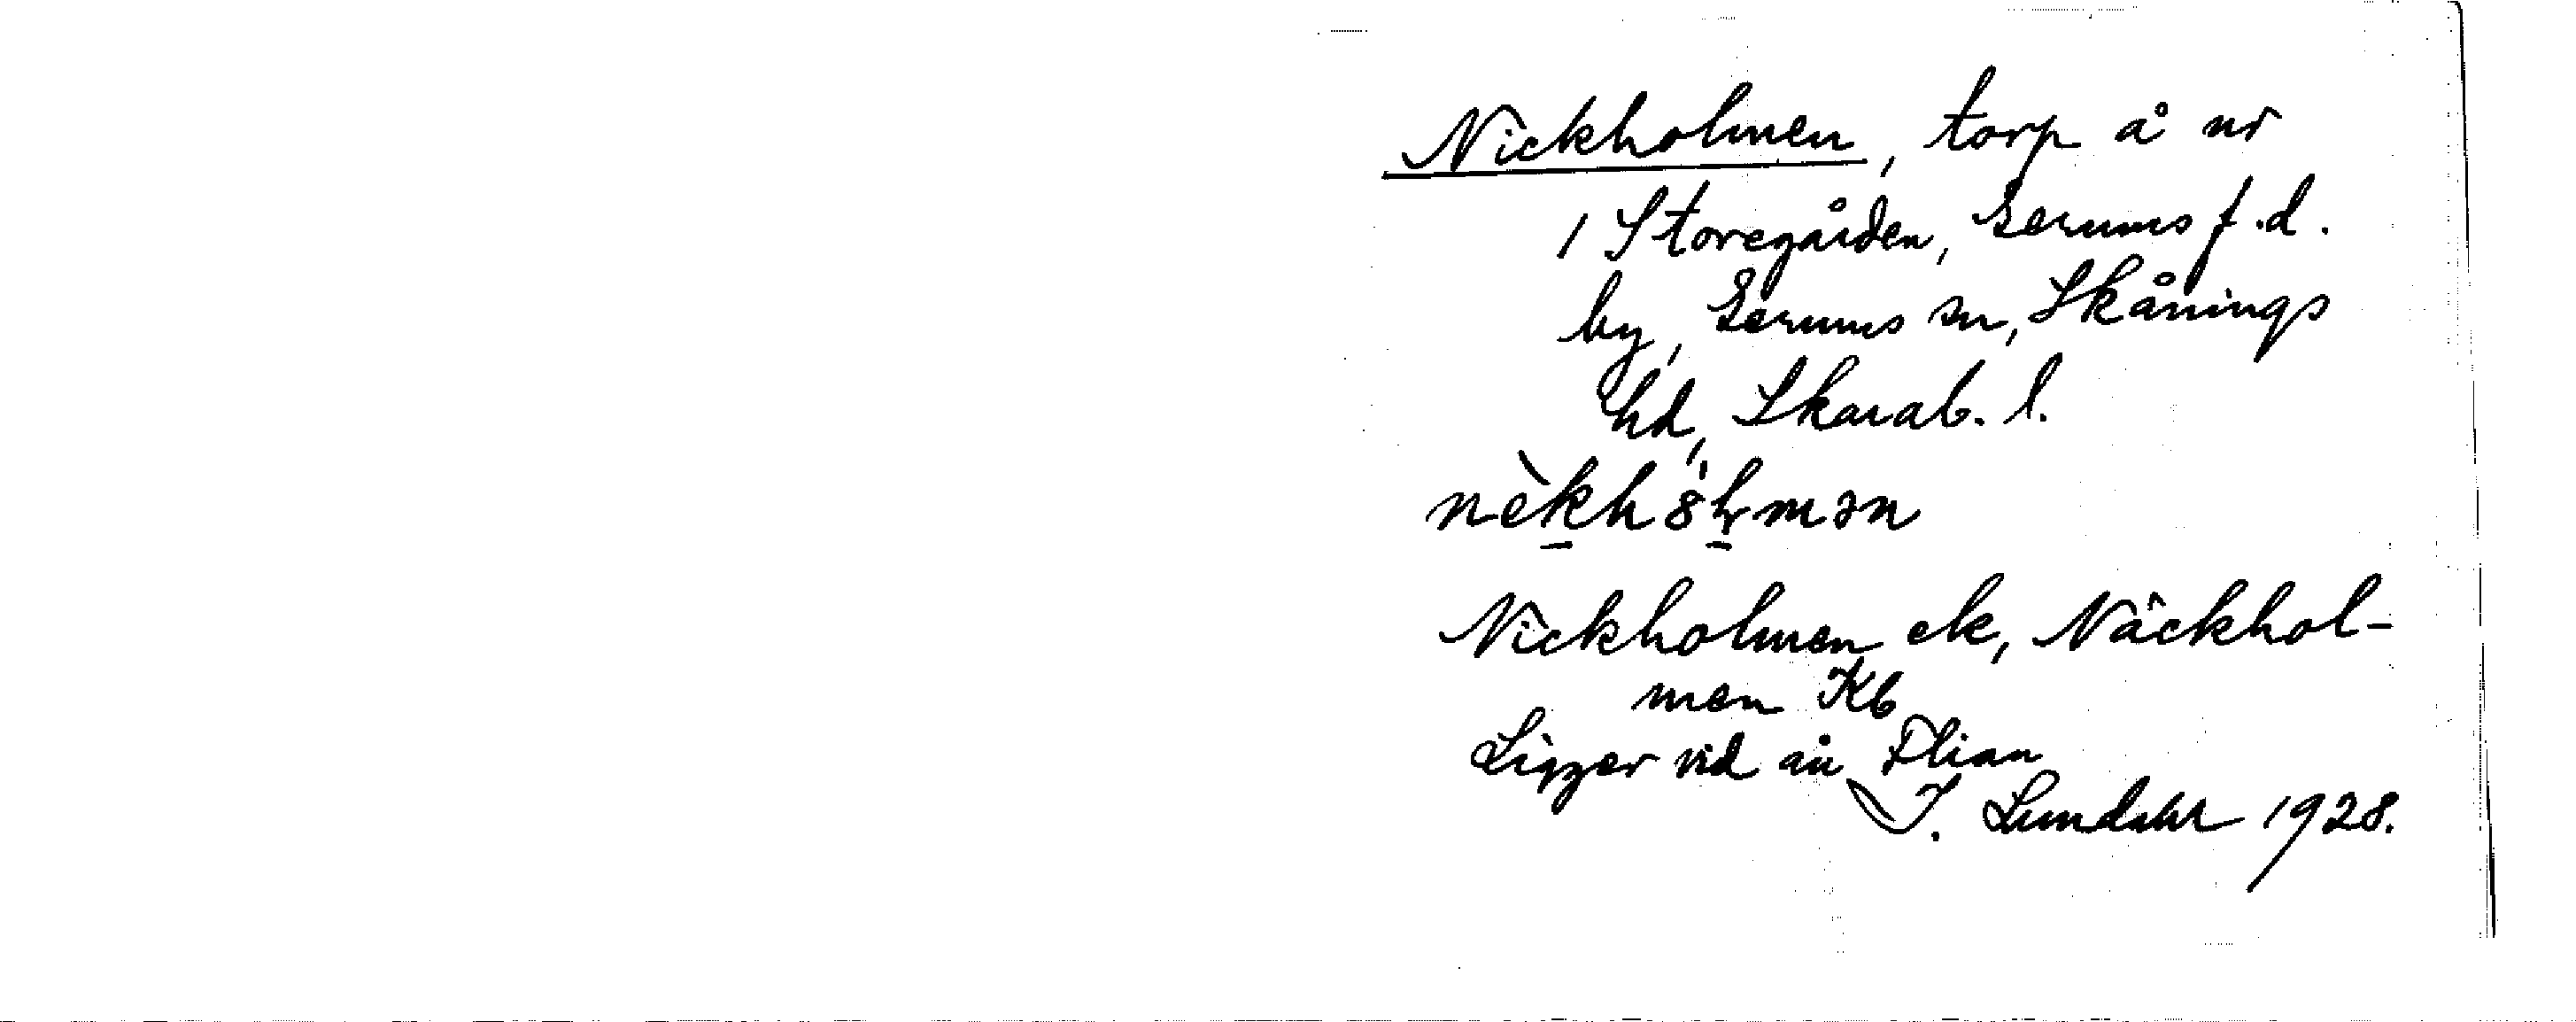 Nickholmen, torp å nr
1 Storegården, Gerums f.d.
by, Gerums sn, Skånings
hd, Skarab. l.
Nickholmen ek, Näckhol-
men Kb
Ligger vid ån Flian
J. Lundahl 1928.